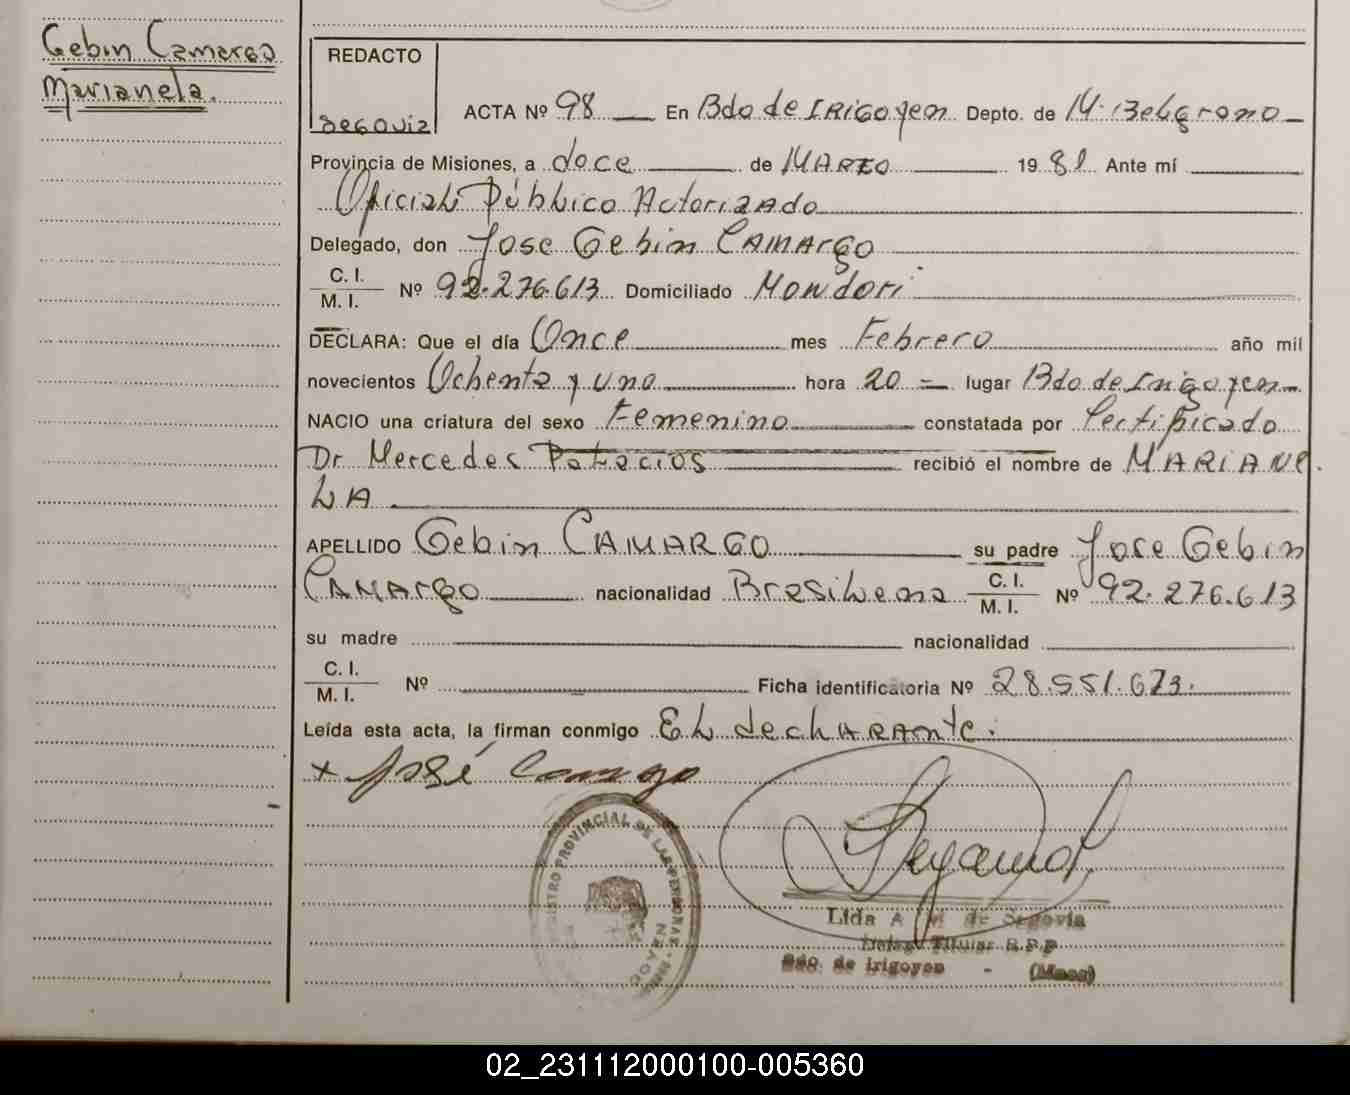 Gebin Camargo
Marianela.
REDACTO
Segovia
ACTA Nº 98 En Bdo de IRIGOyen Depto. de M. Belgrano
Provincia de Misiones, a doce de MARZO 1981 Ante mí
Oficial Público Actorizado
Delegado, don Jose Gebin CAMARGO
C. I.
M. I. Nº 92.276.613 Domiciliado Mondori
DECLARA: Que el día Once mes Febrero año mil
novecientos Ochenta y uno hora 20 = lugar Bdo de Irigoyen
NACIO una criatura del sexo Femenino constatada por Certificado
Dr Mercedes Palacios recibió el nombre de MARIANE
LA
APELLIDO Gebin CAMARGO su padre Jose Gebin
CAMARGO nacionalidad Brasilena C. I. M. I. Nº 92.276.613
su madre nacionalidad
C. I.
M. I. Nº Ficha identificatoria Nº 28.551.673.
Leída esta acta, la firman conmigo EL declARANte.
x José Camargo
REGISTRO PROVINCIAL DE LAS PERSONAS
Lida A M de Segovia
Deleg. Titular R.P.P
Bdo. de Irigoyen - (Mnes)
02_231112000100-005360